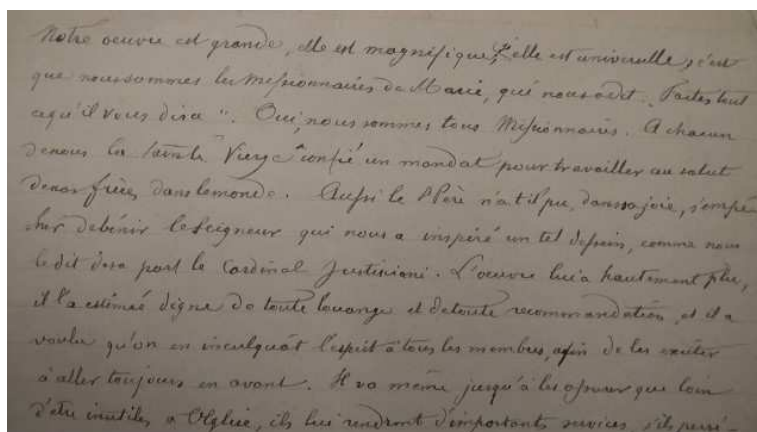 Notre oeuvre est grande, elle est magnifique, elle est universelle, c'est
que nous sommes les Missionnaires de Marie, qui nous a dit "Faites tout
ce qu'il vous dira". Oui, nous sommes tous Missionnaires. A chacun
de nous la Sainte Vierge a confié un mandat pour travailler au salut
de nos frères dans le monde. Aussi le St Père n'a t'il pu, dans sa joie, s'empê-
cher de bénir le Seigneur qui nous a inspiré un tel dessein, comme nous
le dit de sa part le Cardinal Justiniani. L'oeuvre lui a hautement plu,
il l'a estimée digne de toute louange et de toute recommandation, et il a
voulu qu'on en inculquât l'esprit à tous les membres, afin de les exciter
à aller toujours en avant. Il va même jusqu'à les assurer que loin
d'être inutiles à l'Eglise, ils lui rendront d'importants services, s'ils persé-